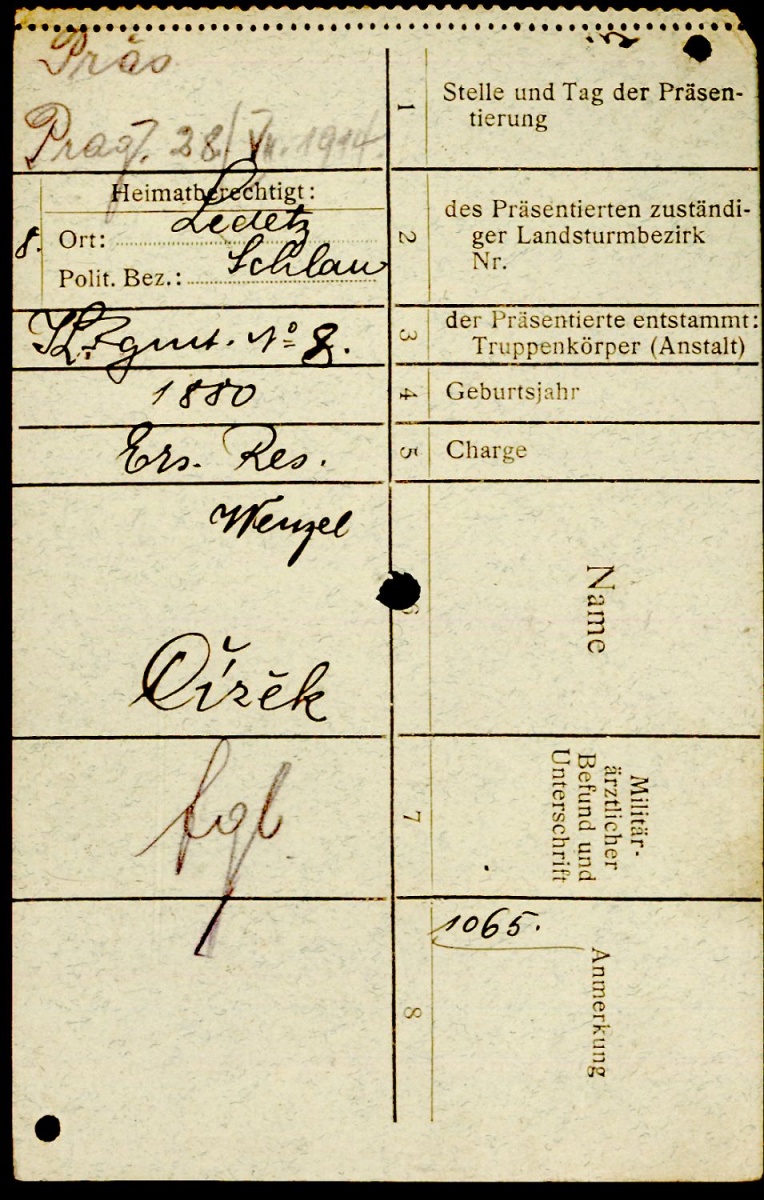 Präs
Prag, 28/VII. 1914
1
Stelle und Tag der Präsen-
tierung
8.
Heimatberechtigt:
Ort: Ledetz
Polit. Bez.: Schlan
2
des Präsentierten zuständi-
ger Landsturmbezirk
Nr.
Rgmt. No 8.
3
der Präsentierte entstammt:
Truppenkörper (Anstalt)
1880
4
Geburtsjahr
Ers. Res.
5
Charge
Wenzel
Čížek
6
Name
fgl
7
Militär-
ärztlicher
Befund und
Unterschrift
1065.
8
Anmerkung